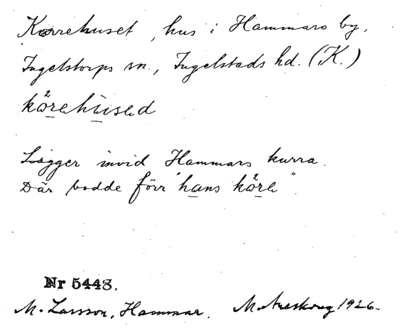 Körrehuset, hus i Hammars by,
Ingelstorps sn., Ingelstads hd. (K.)
kö̀rehùsəd
Ligger invid Hammars kurra.
Där bodde förr "hans kö̀rə".
Nr 5448.
M. Larsson, Hammar. M. Areskoug 1926.